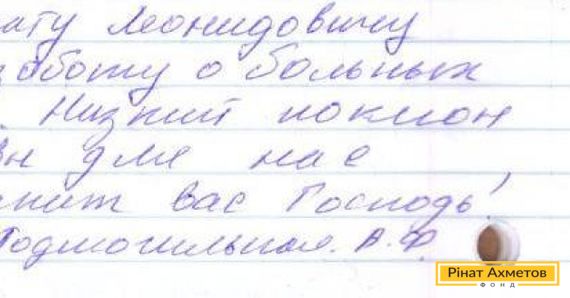 ату Леонидовичу
аботу о больных
. Низкий поклон
вы для нас
нит вас Господь!
Подмогильная. А.Ф
Рінат Ахметов
ФОНД